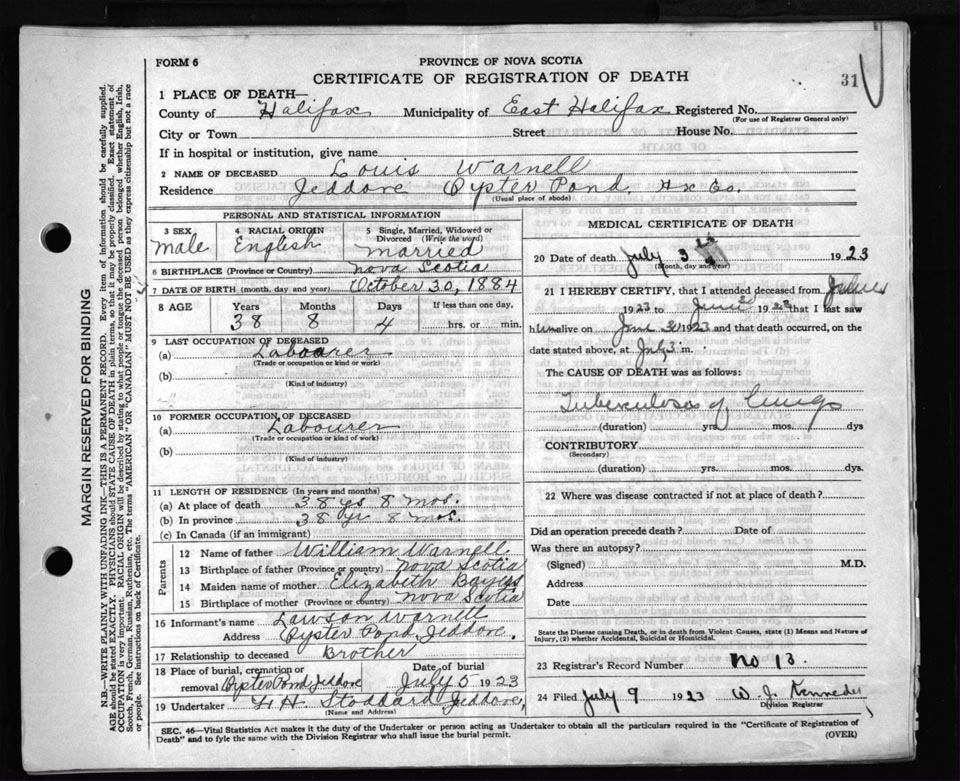 FORM 6
PROVINCE OF NOVA SCOTIA
CERTIFICATE OF REGISTRATION OF DEATH
31
1 PLACE OF DEATH—
County of Halifax Municipality of East Halifax Registered No.
(For use of Registrar General only)
City or Town Street House No.
If in hospital or institution, give name
2 NAME OF DECEASED Louis Warnell
Residence Jeddore Oyster Pond, Hx Co.
(Usual place of abode)
PERSONAL AND STATISTICAL INFORMATION
3 SEX male
4 RACIAL ORIGIN English
5 Single, Married, Widowed or Divorced (Write the word) married
6 BIRTHPLACE (Province or Country) Nova Scotia
7 DATE OF BIRTH (month, day and year) October 30, 1884
8 AGE Years Months Days If less than one day,
38 8 4 hrs. or min.
9 LAST OCCUPATION OF DECEASED
(a) Labourer
(Trade or occupation or kind of work)
(b)
(Kind of industry)
10 FORMER OCCUPATION OF DECEASED
(a) Labourer
(Trade or occupation or kind of work)
(b)
(Kind of industry)
11 LENGTH OF RESIDENCE (In years and months)
(a) At place of death 38 ys 8 mos.
(b) In province 38 yr 8 mos.
(c) In Canada (if an immigrant)
Parents
12 Name of father William Warnell
13 Birthplace of father (Province or country) Nova Scotia
14 Maiden name of mother Elizabeth
15 Birthplace of mother (Province or country) Nova Scotia
16 Informant's name Lawson Warnell
Address Oyster Pond, Jeddore.
17 Relationship to deceased Brother
18 Place of burial, cremation or removal Oyster Pond Jeddore Date of burial July 5 1923
19 Undertaker H. Stoddard Jeddore,
(Name and Address)
MEDICAL CERTIFICATE OF DEATH
20 Date of death July 3 1923
(Month, day and year)
21 I HEREBY CERTIFY, that I attended deceased from
1923 to June 1923 that I last saw
him alive on June 1923 and that death occurred, on the
date stated above, at July 3 m.
The CAUSE OF DEATH was as follows:
Tuberculosis of lungs
(duration) yrs. mos. dys
CONTRIBUTORY
(Secondary)
(duration) yrs. mos. dys.
22 Where was disease contracted if not at place of death?
Did an operation precede death? Date of
Was there an autopsy?
(Signed) M.D.
Address
Date
State the Disease causing Death, or in death from Violent Causes, state (1) Means and Nature of Injury, (2) whether Accidental, Suicidal or Homicidal.
23 Registrar's Record Number No 13.
24 Filed July 9 1923 W. J. Kennedy
Division Registrar
SEC. 46—Vital Statistics Act makes it the duty of the Undertaker or person acting as Undertaker to obtain all the particulars required in the "Certificate of Registration of
Death" and to fyle the same with the Division Registrar who shall issue the burial permit. (OVER)
MARGIN RESERVED FOR BINDING
N.B.—WRITE PLAINLY WITH UNFADING INK—THIS IS A PERMANENT RECORD. Every item of information should be carefully supplied.
AGE should be stated EXACTLY. PHYSICIANS should STATE CAUSE OF DEATH in plain terms, so that it may be properly classified. Exact statement of
OCCUPATION is very important. RACIAL ORIGIN will be described by stating to what people or tongue the deceased person belonged whether English, Irish,
Scotch, French, German, Russian, Ruthenian, etc. The terms "AMERICAN" OR "CANADIAN" MUST NOT BE USED as they express citizenship but not a race
or people. See instructions on back of Certificate.